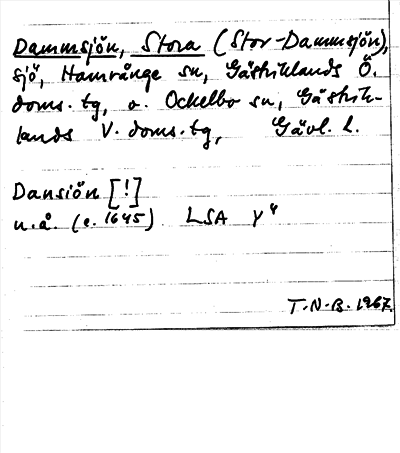 Dammsjön, Stora (Stor-Dammsjön),
sjö, Hamrånge sn, Gästriklands Ö.
doms. tg, o. Ockelbo sn, Gästrik-
lands V. doms. tg, Gävl. l.
Dansiön [!]
u.å. (c. 1645) LSA Y4
T.N.B. 1967.